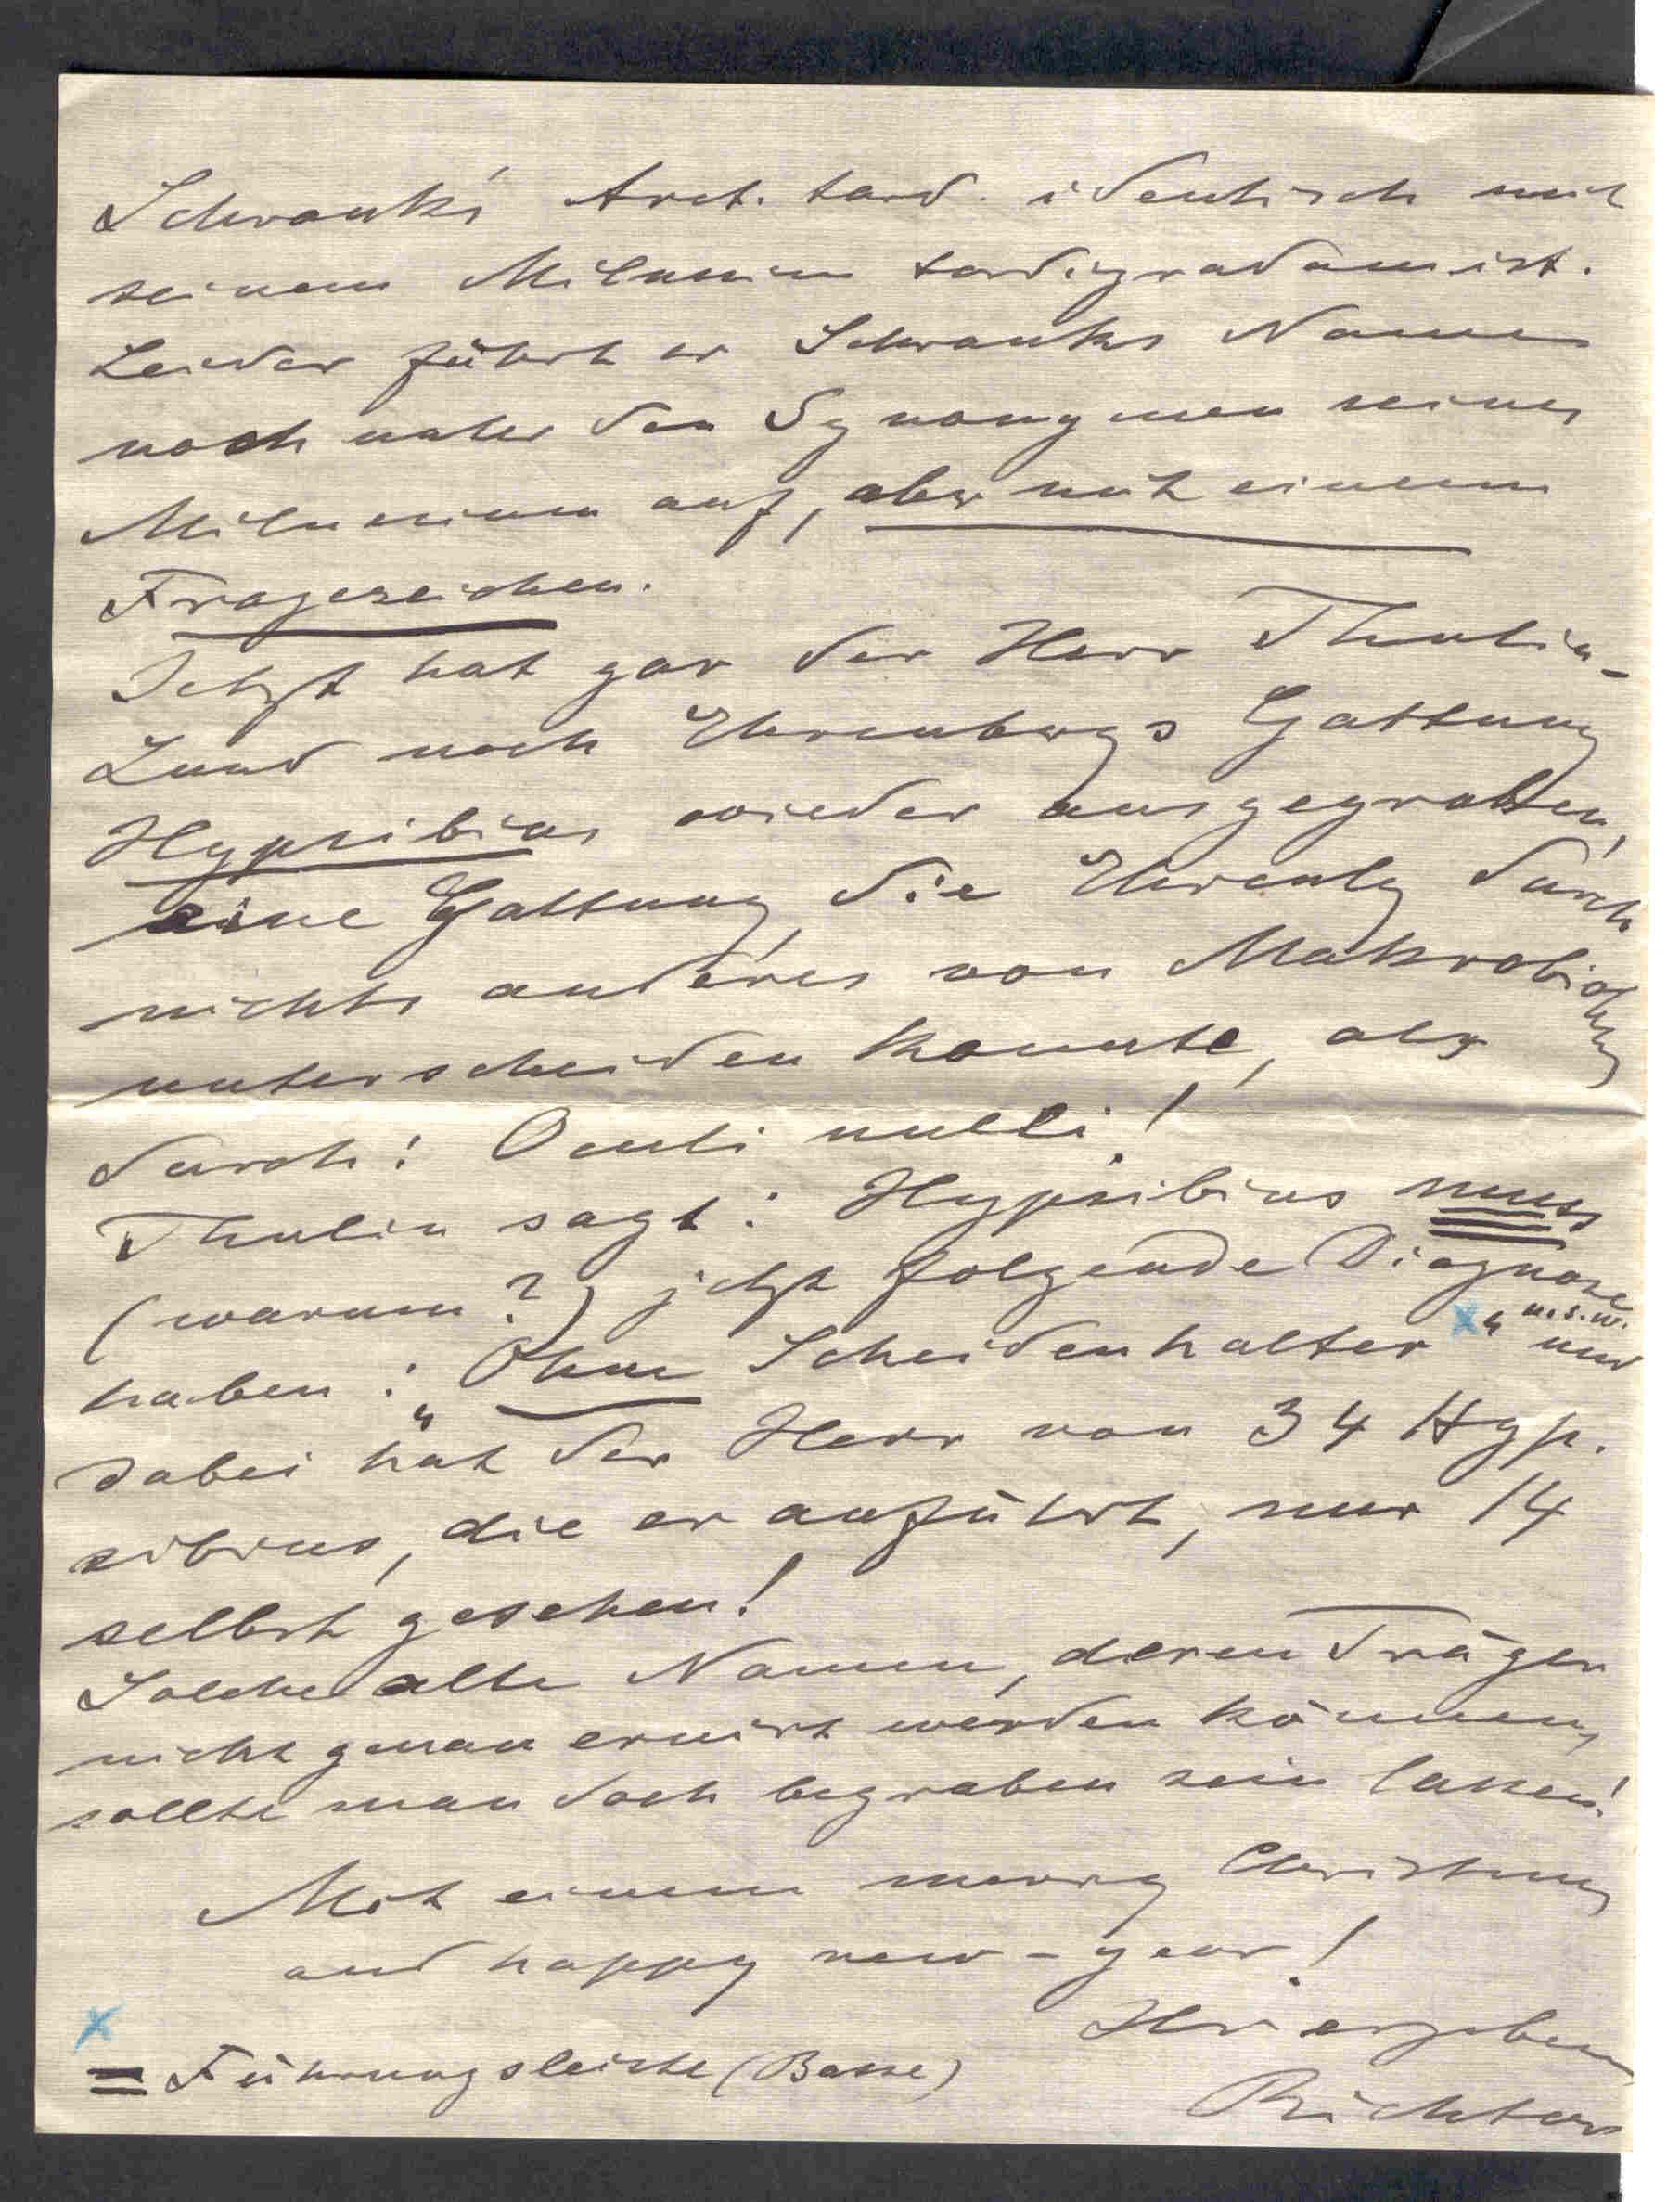 Schrank's Arct. tard. identisch mit
seinem Milnesium tardigradum ist.
Leider führt er Schranks Namen
noch unter den Synonymen seines
Milnesium auf, aber mit einem
Fragezeichen.
Jetzt hat gar der Herr Thulin-
Lund noch Ehrenbergs Gattung
Hypsibius wieder ausgegraben,
eine Gattung, die Ehrenbg durch
nichts anderes von Makrobiotus
unterscheiden konnte, als
durch: Oculi nulli!
Thulin sagt: Hypsibius muss
(warum?) jetzt folgende Diagnose
haben: „Ohne Scheidenhalter x" u.s.w. und
dabei hat der Herr von 34 Hyp.
sibius, die er anführt, nur 14
selbst gesehen!
Solche alte Namen, deren Träger
nicht genau eruirt werden können,
sollte man doch begraben sein lassen!
Mit einem merry Christmas
and happy new-year!
Ihr ergeben
Richters
x
= Führungsleiste (Basse)